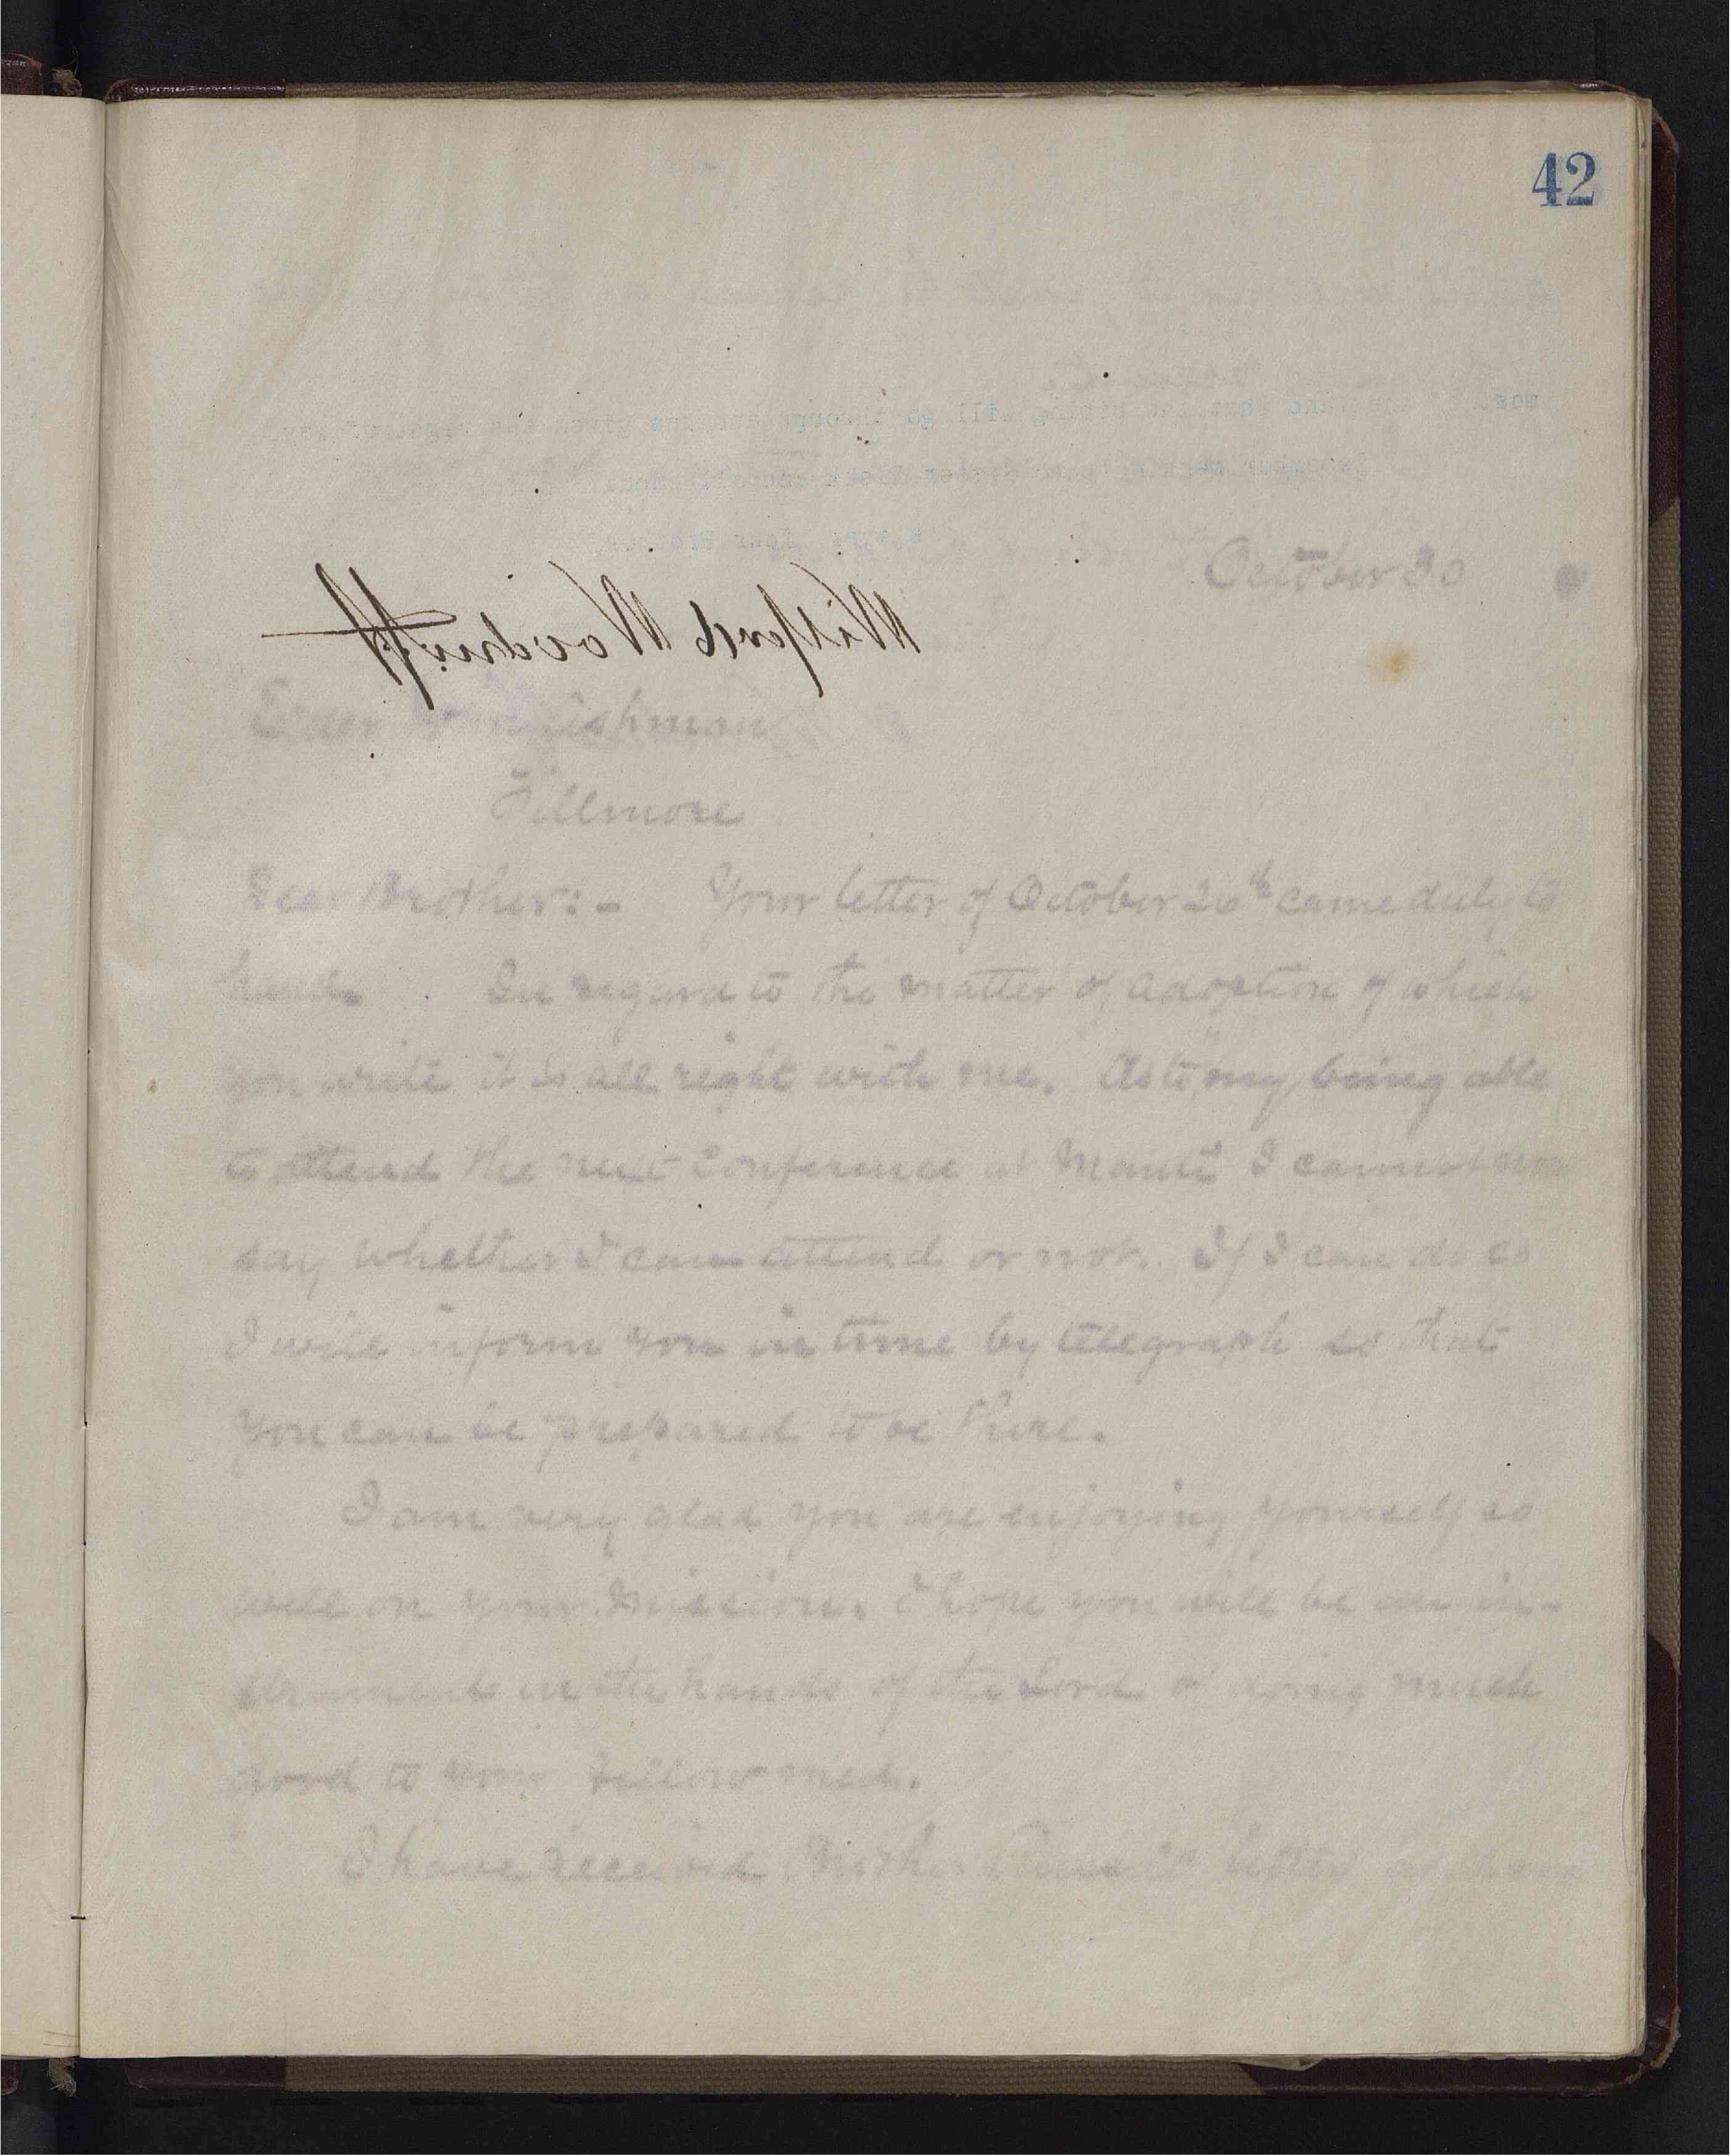 42
October 30
Wilford Woodruff
Elder Wm Ashman
Fillmore
Dear Brother:- Your letter of October 26th came duly to
hand. In regard to the matter of adoption of which
you write it is all right with me. As to my being able
to attend the next conference at Manti I cannot now
say whether I can attend or not. If I can do so
I will inform you in time by telegraph so that
you can be prepared to be there.
I am very glad you are enjoying yourself so
well on your mission. I hope you will be an in-
strument in the hands of the Lord of doing much
good to your fellow men.
I have received Brother letter